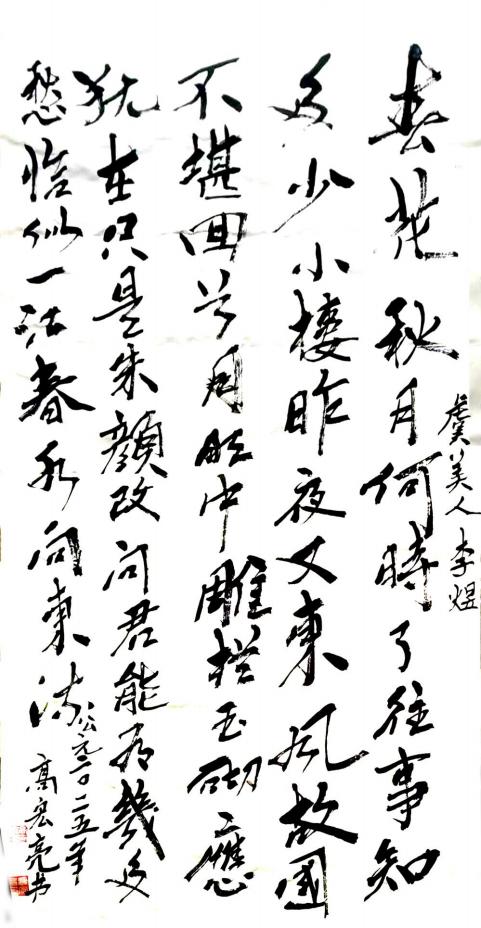 虞美人 李煜
春花秋月何時了往事知
多少小樓昨夜又東風故國
不堪回首月明中雕栏玉砌應
犹在只是朱顔改问君能有幾多
愁恰似一江春水向東流
公元二〇二五年
高宏亮书